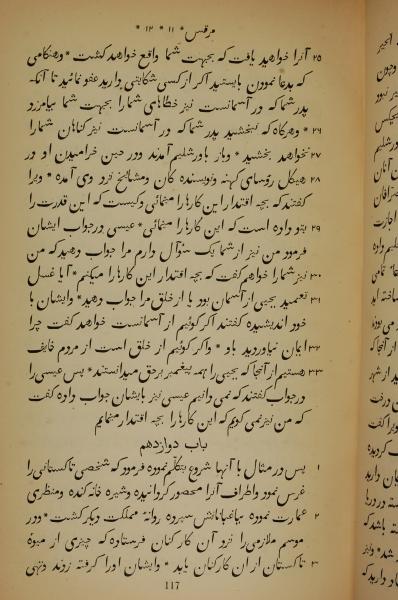 مرقس * ۱۱ * ۱۲ *
۲۵ آنرا خواهید یافت که بجهت شما واقع خواهد گشت * وهنگامی
که بدعا نمودن بایستید اگر از کسی شکایتی دارید عفو نمائید تا آنکه
پدر شما که در آسمانست نیز خطاهای شما را بجهت شما بیامرزد
۲۶ * وهرگاه که نبخشید پدر شما که در آسمانست نیز گناهان شما را
۲۷ نخواهد بخشید * وباز باورشلیم آمدند ودر حین خرامیدن او در
۲۸ هیکل رؤسای کهنه ونویسنده کان ومشائخ نزد وی آمده * ویرا
گفتند که بچه اقتدار این کارها را مینمائی وکیست که این قدرت را
۲۹ بتو داده است که این کارها را مینمائی * عیسی در جواب ایشان
فرمود من نیز از شما یک سؤال دارم مرا جواب دهید که من
۳۰ نیز شما را خواهم گفت که بچه اقتدار این کارها را میکنم * آیا غسل
۳۱ تعمید یحیی از آسمان بود یا از خلق مرا جواب دهید * وایشان با
خود اندیشیده گفتند اگر گوئیم از آسمانست خواهد گفت چرا
۳۲ ایمان نیاوردید باو * واگر گوئیم از خلق است از مردم خایف
۳۳ هستیم از آنجا که یحیی را همه پیغمبر برحق میدانستند * پس عیسی را
در جواب گفتند که نمی دانیم عیسی نیز بایشان جواب داده گفت
که من نیز نمی گویم که این کارها را بچه اقتدار مینمایم
باب دوازدهم
۱ پس در مثال با آنها شروع بتکلم نموده فرمود که شخصی تاکستانی را
غرس نمود واطراف آنرا محصور گردانیده وشیره خانه کنده ومنظری
۲ عمارت نموده بباغبانانش سپرده روانهٔ مملکت دیگر گشت * ودر
موسم ملازمی را نزد آن کارکنان فرستاده که چیزی از میوهٔ
۳ تاکستان از ان کارکنان یابد * وایشان اورا گرفته زدند وتهی
117